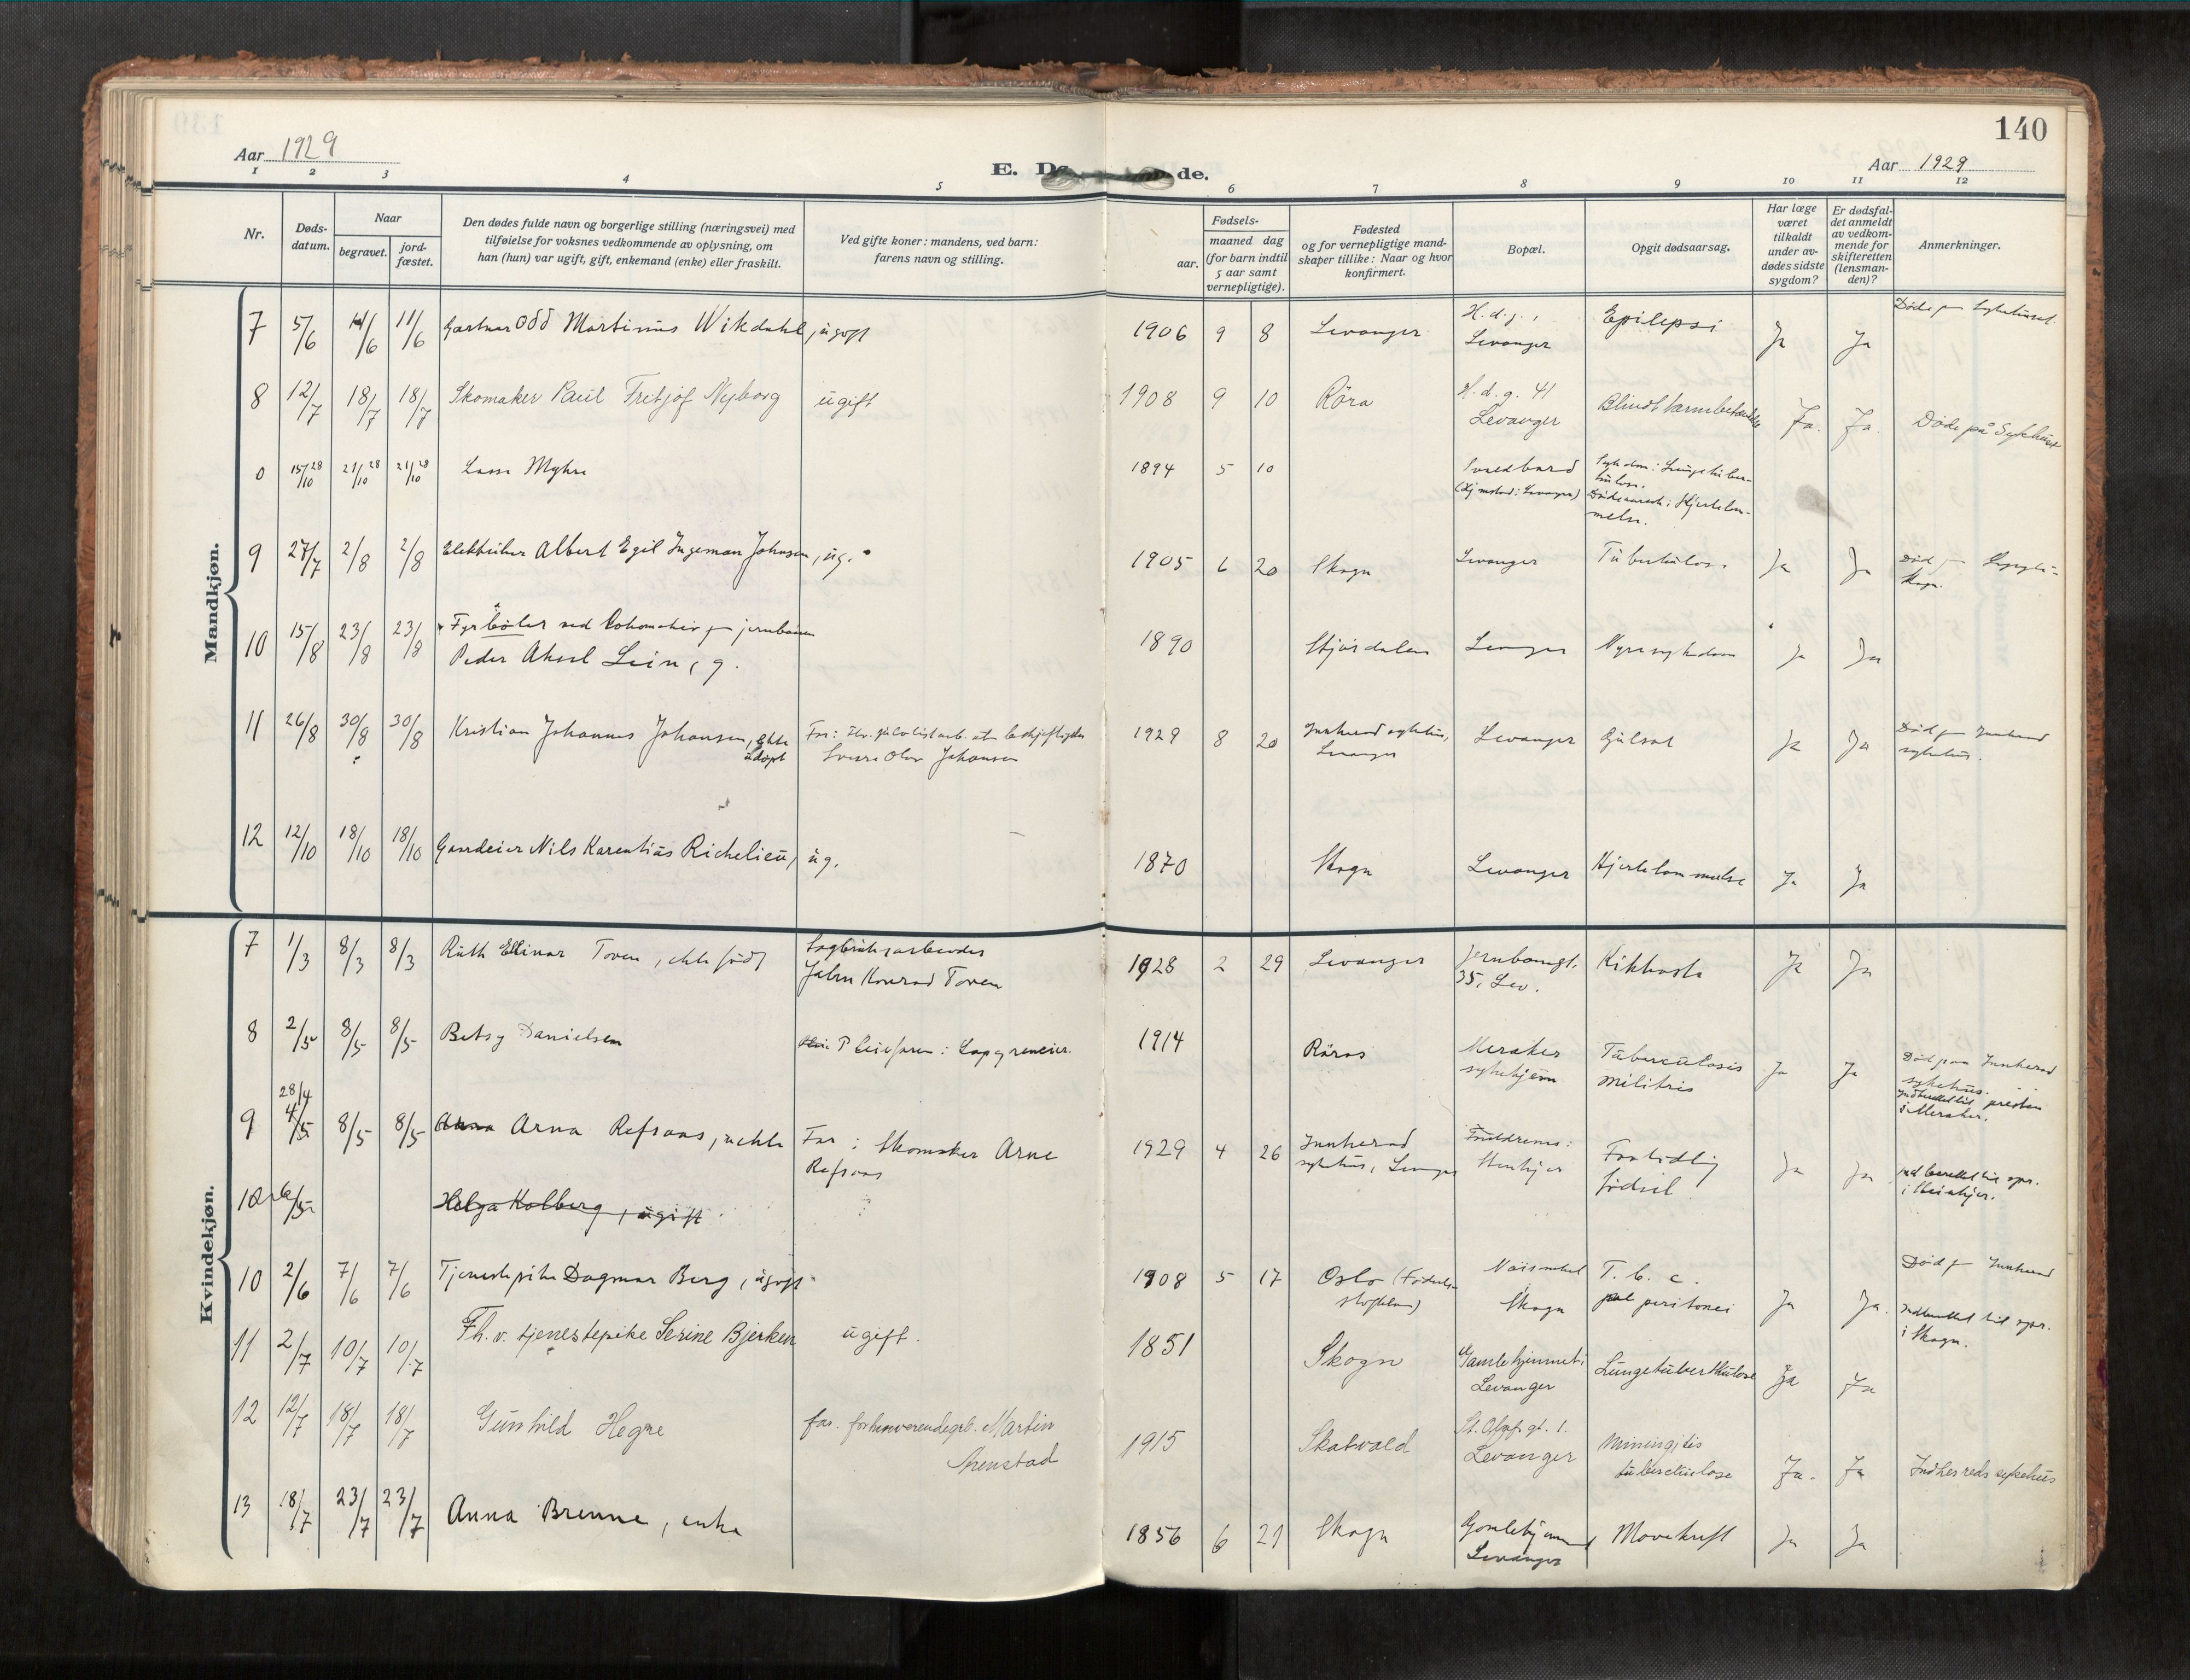 140
Aar 1929
E. D de.
Aar 1929
1 2 3 4 5 6 7 8 9 10 11 12
Nr.
Døds-
datum.
Naar
begravet.
jord-
fæstet.
Den dødes fulde navn og borgerlige stilling (næringsvei) med
tilføielse for voksnes vedkommende av oplysning, om
han (hun) var ugift, gift, enkemand (enke) eller fraskilt.
Ved gifte koner: mandens, ved barn:
farens navn og stilling.
Fødsels-
aar.
maaned dag
(for barn indtil
5 aar samt
vernepligtige).
Fødested
og for vernepligtige mand-
skaper tillike: Naar og hvor
konfirmert.
Bopæl.
Opgit dødsaarsag.
Har læge
været
tilkaldt
under av-
dødes sidste
sygdom?
Er dødsfal-
det anmeldt
av vedkom-
mende for
skifteretten
(lensman-
den)?
Anmerkninger.
Mandkjøn.
7 5/6 11/6 11/6 Gartner Odd Martinus Wikdahl, ugift 1906 9 8 Levanger H.d.g., Levanger Epilepsi Ja Ja Døde på Sykehuset
8 12/7 18/7 18/7 Skomaker Paul Fritjof Nyborg ugift 1908 9 10 Röra H.d.g. 41 Levanger Blindtarmbetændelse Ja. Ja Døde på Sykehuset
0 15/10 28 21/10 28 21/10 28 Lasse Myhre 1894 5 10 Svalbard (Hjemsted: Levanger) Sykdom: Lungetuber-
kulose.
Dødsaarsak: Hjertelam-
melse.
9 27/7 2/8 2/8 Elektriker Albert Egil Ingeman Johnsen, ug. 1905 6 20 Skogn Levanger Tuberkulose Ja Ja Død på
Skogn.
10 15/8 23/8 23/8 Fyrböter ved Lokomotiv på jernbanen
Peder Aksel Lein, g. 1890 Stjørdalen Levanger Nyresykdom Ja Ja
11 26/8 30/8 30/8 Kristian Johannes Johansen, ekte
Sverre Olav Johansen 1929 8 20 Innherad sykehus,
Levanger Levanger Gulsot Ja Ja Død på Innherad
sykehus.
12 12/10 18/10 18/10 Gaardeier Nils Karentius Richelieu, ug. 1870 Skogn Levanger Hjertelammelse Ja Ja
Kvindekjøn.
7 1/3 8/3 8/3 Ruth Ellinor Toven, ekte født Sagbruksarbeider
John Konrad Toven 1928 2 29 Levanger Jernbanegt.
35, Lev. Kikhoste Ja Ja
8 2/5 8/5 8/5 Betsy Danielsen 1914 Röros Meraker
sykehjem Tuberculosis
Ja Ja Død paa Innherad
sykehus.
Indberettet til presten
i Meraker.
9 28/4 4/5 8/5 8/5 Arna Refsaas, uekte Far: Skomaker Arne
Refsaas 1929 4 26 Innherad
sykehus, Levanger Foreldrenes:
Steinkjer For tidlig
födsel Ja Ja Indberettet til spr.
i Steinkjer.
10 6/5 Helga Kolberg, ugift
10 2/6 7/6 7/6 Tjenestepike Dagmar Berg, ugift 1908 5 17 Oslo (Födsels-
stiftelsen) Skogn T. b. c.
peritonei Ja Ja. Død på Innherad
Indberettet til spr.
i Skogn.
11 2/7 10/7 10/7 Fh. v. tjenestepike Serine Bjerken ugift. 1851 Skogn Gamlehjemmet i
Levanger Lungetuberkulose Ja Ja
12 12/7 18/7 18/7 Gunhild Hegre far. forhenværende grb. Martin
1915 Skatvald St. Olafs gt. 1.
Levanger Miningitis
tuberckulose Ja. Ja Indherreds sykehus
13 18/7 23/7 23/7 Anna Brenne, enke 1856 6 21 Skogn Gamlehjemmet
Levanger Mavekreft Ja Ja